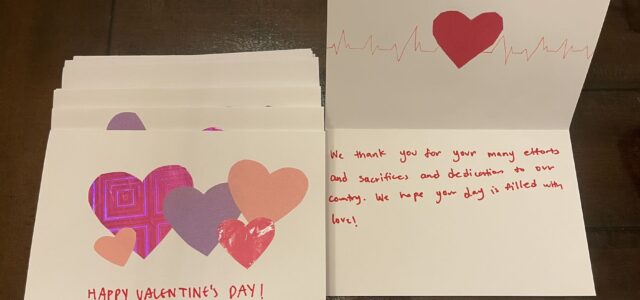 HAPPY VALENTINE'S DAY!
We thank you for your many efforts
and sacrifices and dedication to our
country. We hope your day is filled with
love!